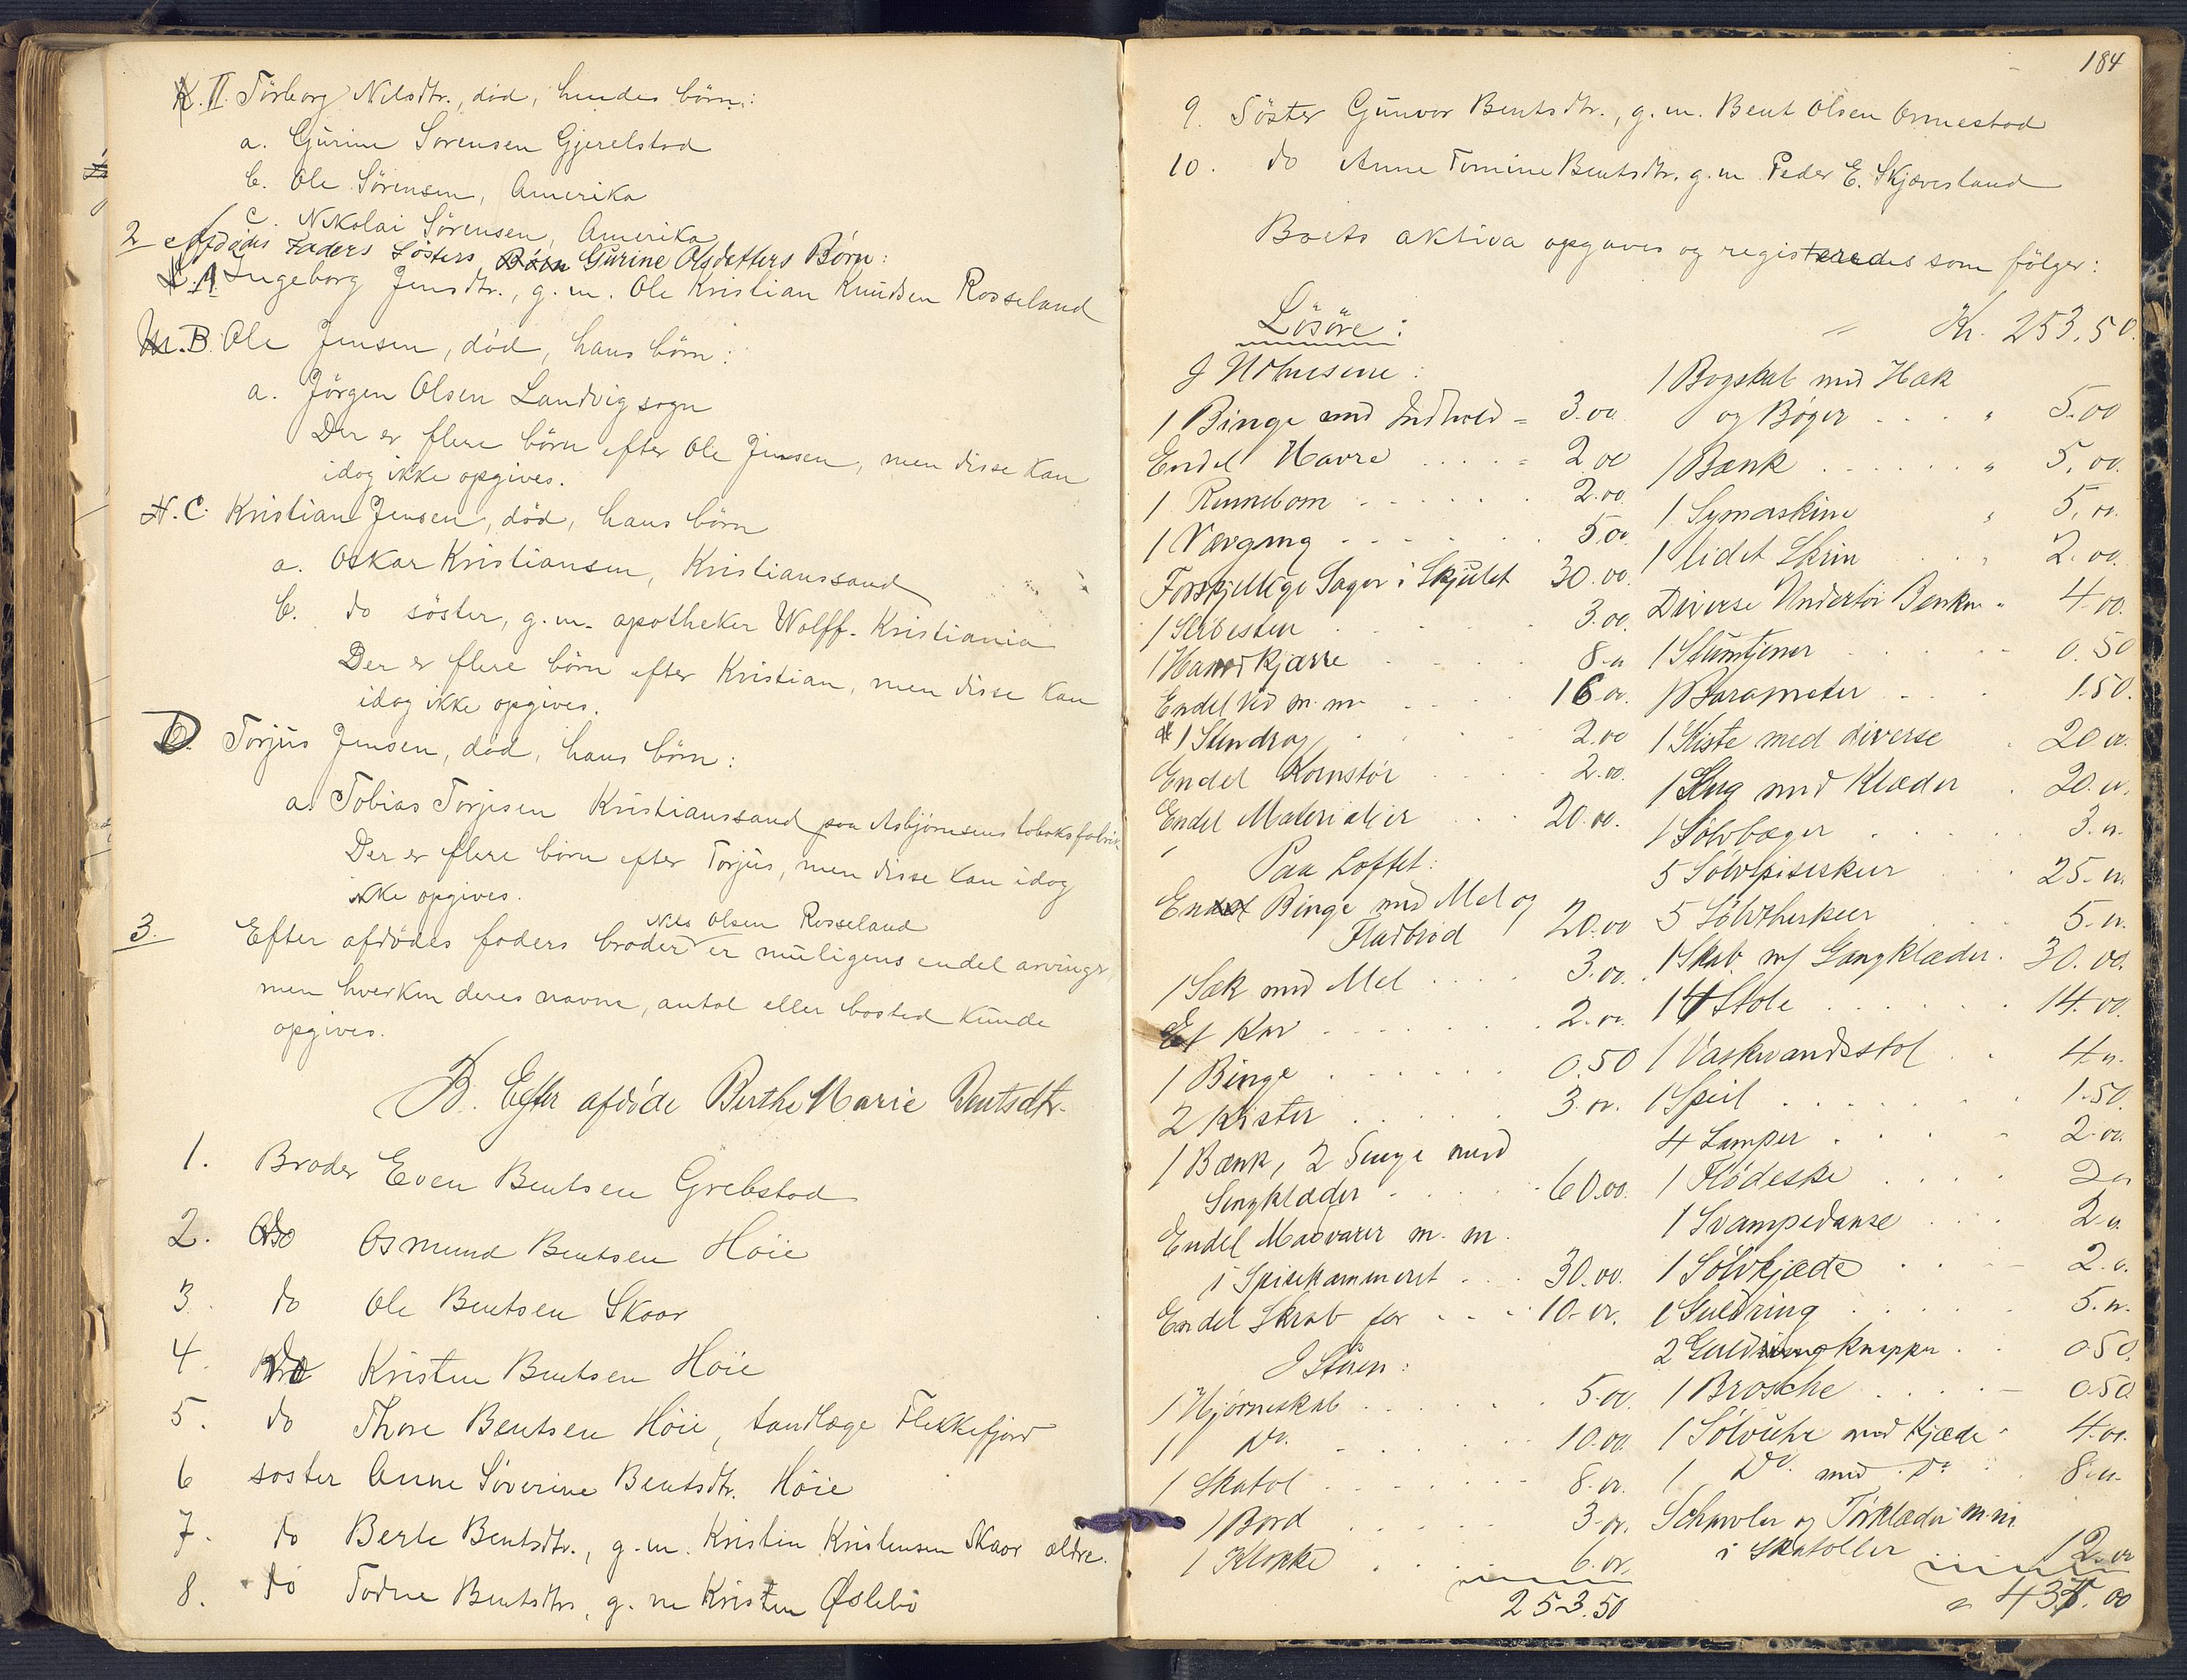 K. II. Torborg Nilsdtr., død, hendes børn:
a. Gurine Sørensen Gjerelstad
b. Ole Sørensen, Amerika
c. Nikolai Sørensen, Amerika
2 Afdødes Faders Søsters Børn Gurine Olsdatters Børn:
L. A Ingeborg Jensdtr., g. m. Ole Kristian Knudsen Rosseland
M. B. Ole Jensen, død, hans børn:
a. Jørgen Olsen Landvig sogn
Der er flere børn efter Ole Jensen, men disse kan
idag ikke opgives.
N. C. Kristian Jensen, død, hans børn
a. Oskar Kristiansen, Kristianssand
b. do søster, g. m. apotheker Wolff. Kristiania
Der er flere børn efter Kristian, men disse kan
idag ikke opgives.
D. Torjus Jensen, død, hans børn:
a. Tobias Torjesen Kristianssand paa Asbjørnsens tobaksfabrik
Der er flere børn efter Torjus, men disse kan idag
ikke opgives.
Nils Olsen Rosseland
3. Efter afdødes faders broder er muligens endel arvinger,
men hverken deres navne, antal eller bosted kunde
opgives.
B. Efter afdøde Berthe Marie Bentsdtr.
1. Broder Even Bentsen Grebstad
2. do Osmund Bentsen Høie
3. do Ole Bentsen Skaar
4. do Kristen Bentsen Høie
5. do Thore Bentsen Høie, tandlæge Flekkefjord
6 søster Anne Severine Bentsdtr. Høie
7. do Berte Bentsdtr., g. m. Kristen Kristensen Skaar ældre.
8. do Todne Bentsdtr, g. m Kristen Øslebø
184
9. Søster Gunvor Bentsdtr., g. m. Bent Olsen Ormestad
10. do Anne Tomine Bentsdtr. g. m Peder E. Skjævesland
Boets aktiva opgaves og registeredes som følger:
Løsøre:
I Udhusene:
1 Binge med Indhold = 3.00
Endel Havre .... = 2.00
1 Rennebom ..... 2.00
1 Vævgang ..... 5.00
Forskjellige Sager i Skjulet 30.00.
1 Slibesten .... 3.00.
1 Haandkjærre .... 8.00
Endel Ved m. m. ... 16.00.
1 Stendrag ... 2.00
Endel Kornstør .... 2.00.
Endel Materialier ... 20.00.
Paa Loftet:
En Binge med Mel og
Fladbrød 20.00
1 Sæk med Mel .... 3.00.
Et Kar ....... 2.00.
1 Binge ...... 0.50
2 Kister ..... 3.00.
1 Bænk, 2 Senge med
Sengklæder .... 60.00.
Endel Madvarer m. m.
i Spisekammeret ... 30.00.
Endel Skrab for ... 10.00.
I Stuen:
1 Hjørneskab ..... 5.00.
1 Do. ..... 10.00.
1 Skatol ..... 8.00.
1 Bord ..... 3.00.
1 Klokke ... 6.00.
253.50
Kr. 253.50.
1 Bogskab med Hæk
og Bøger ... " 5.00
1 Bænk ...... " 5.00.
1 Symaskine " 5.00.
1 lidet Skrin ... 2.00.
Diverse Undertøi Bænken " 4.00.
1 Stumtjener ..... 0.50
1 Barometer ... 1.50.
1 Kiste med diverse . 20.00.
1 Skra med Klæder . 20.00.
1 Sølvbæger ..... 3.00.
5 Sølvspiseskeer ... 25.00.
5 Sølvtheskeer ... 5.00.
1 Skab m/ Gangklæder. 30.00.
14 Stole ...... 14.00.
1 Vaskvandsstol .. 4.00.
1 Speil ....... 1.50.
4 Lamper .... 2.00.
1 Flødeske .... 2.00
1 Svampedaase .... 2.00.
1 Sølvkjæde ... 2.00.
1 Guldring ..... 5.00.
2 Guldknapper .. 0.50.
1 Brosche ..... 0.50
1 Sølvuhr med Kjæde " 4.00.
1 Do. med Do. .. 8.00.
Schavler og Tørklæder m.m.
i Skatollet 12.00
" 437.00